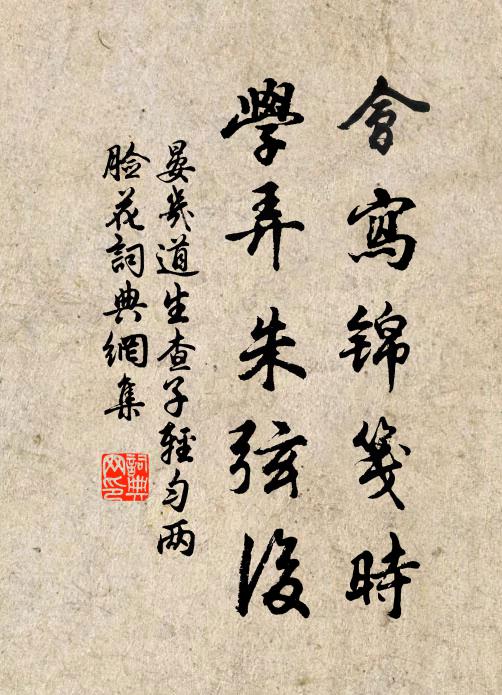 會寫錦箋時
學弄朱弦後
晏幾道生查子輕勻两
臉花詞典網集
詞典
网印